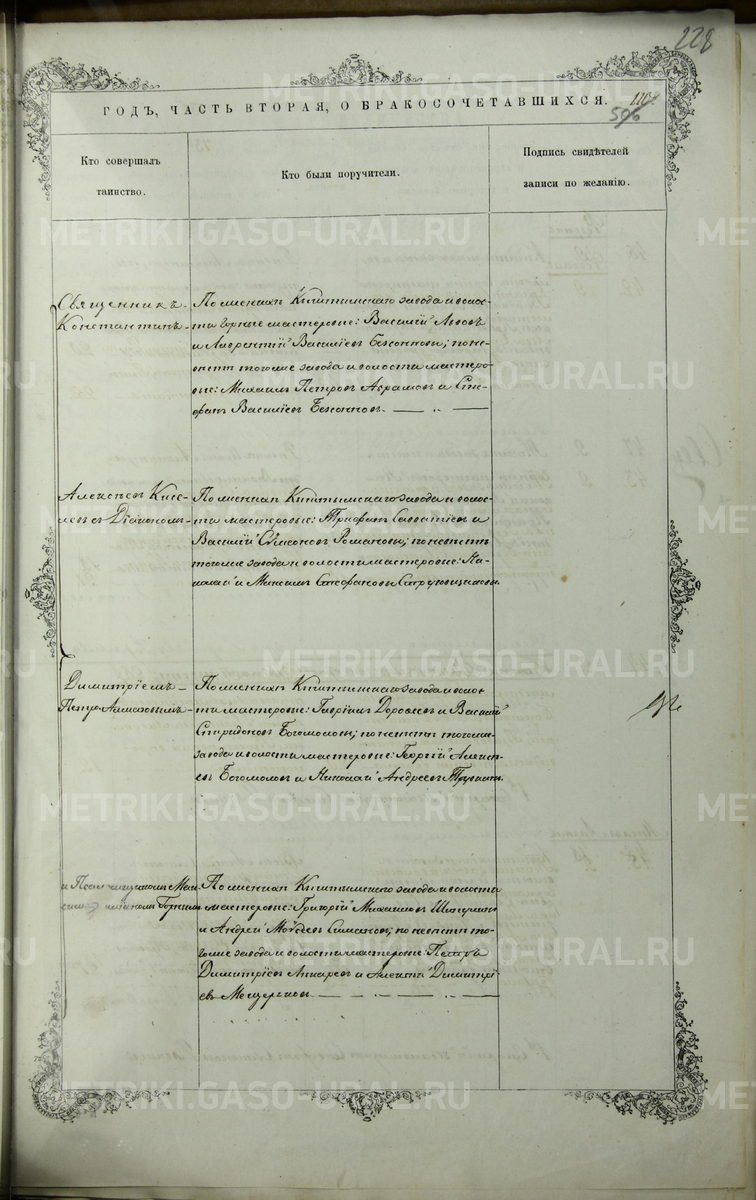 228
ГОДЪ, ЧАСТЬ ВТОРАЯ, О БРАКОСОЧЕТАВШИХСЯ.
596
Кто совершалъ
таинство.
Кто были поручители.
Подпись свидѣтелей
записи по желанію.
METRIKI.GASO-URAL.RU
Священникъ
Константинъ
По женихѣ Кыштымскаго завода и волос-
ти горные мастеровые: Василій Львовъ
и Лаврентій Василіевъ; по не-
вѣстѣ тогоже завода и волости мастеро-
вые: Михаилъ Петровъ Абрамовъ и Сте-
фанъ Василіевъ
METRIKI.GASO-URAL.RU
Алексѣевъ Кисе-
левъ съ Діакономъ
По женихѣ Кыштымскаго завода и волос-
ти мастеровые: Трифонъ Савватіевъ и
Василій Симеоновъ Романовы; по невѣстѣ
тогоже завода и волости мастеровые: Ни-
колай и Максимъ Стефановы
METRIKI.GASO-URAL.RU
Димитріемъ
Петро-Алмазовымъ
По женихѣ Кыштымскаго завода и волос-
ти мастеровые: Гавріилъ Дорофеевъ и Василій
Спиридоновъ Богомоловы; по невѣстѣ тогоже
завода и волости мастеровые: Георгій Алексѣ-
евъ Богомоловъ и Николай Андреевъ
METRIKI.GASO-URAL.RU
По женихѣ Кыштымскаго завода и волости
мастеровые: Григорій Михаиловъ
и Андрей Моѵсеевъ; по невѣстѣ то-
гоже завода и волости мастеровые: Петръ
Димитріевъ и Алексѣй Димитрі-
евъ
METRIKI.GASO-URAL.RU